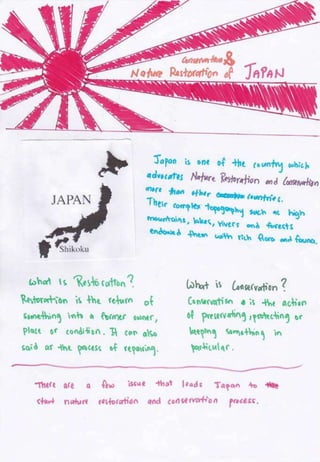 Conservation &
Nature Restoration of JAPAN
Japan is one of the country which
advocates Nature Restoration and Conservation
more than other countries.
Their complex topography such as high
mountains, lakes, rivers and forests
endowed them with rich flora and fauna.
JAPAN
Shikoku
What Is Restoration?
Restoration is the return of
something into a former owner,
place or condition. It can also
said as the process of repairing.
What is Conservation?
Conservation a is the action
of preserving, protecting or
keeping something in
particular.
There are a few issue that leads Japan to
start nature restoration and conservation process.